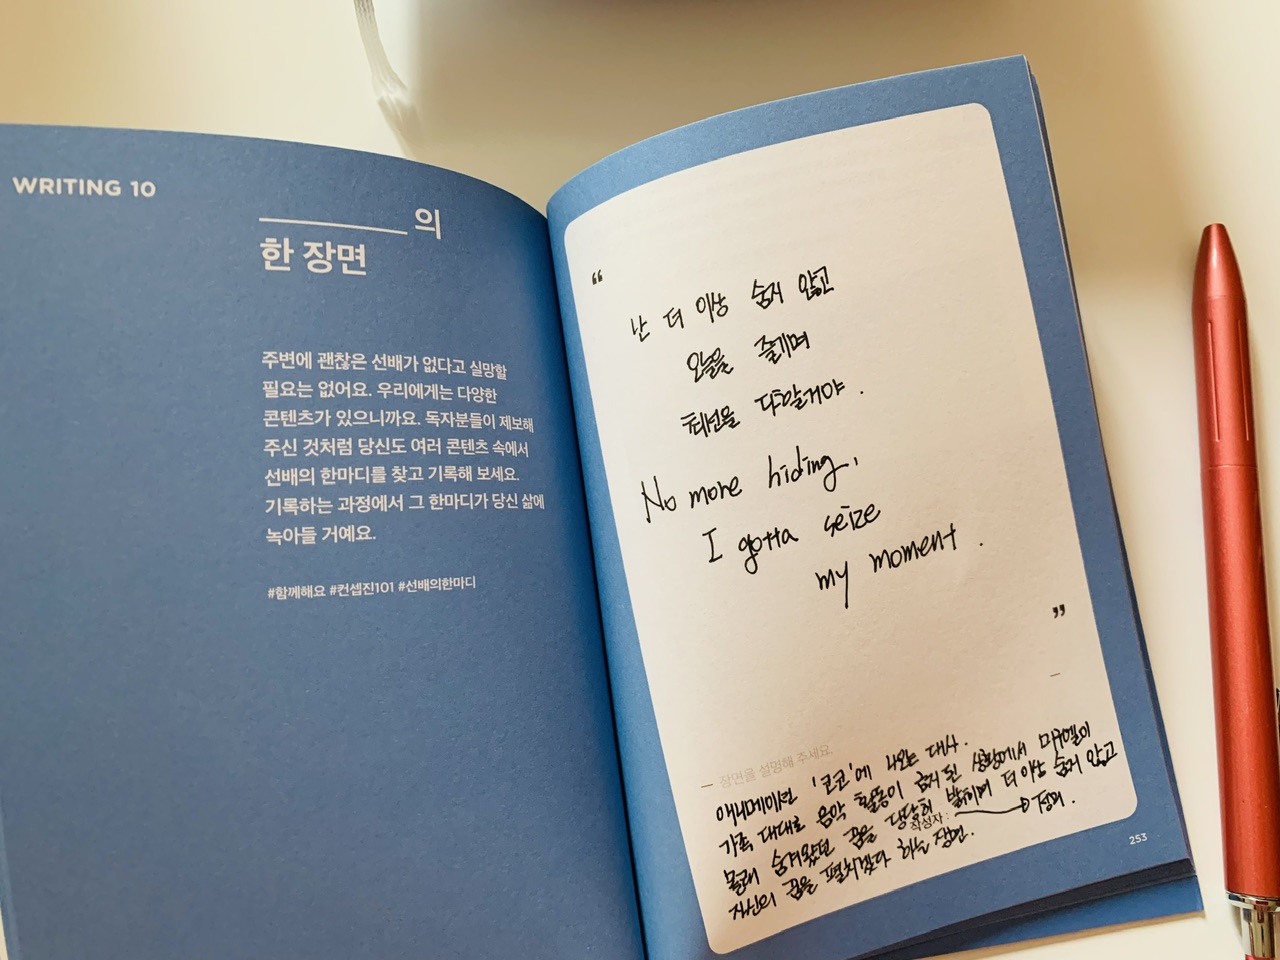 WRITING 10
의
한 장면
주변에 괜찮은 선배가 없다고 실망할
필요는 없어요. 우리에게는 다양한
콘텐츠가 있으니까요. 독자분들이 제보해
주신 것처럼 당신도 여러 콘텐츠 속에서
선배의 한마디를 찾고 기록해 보세요.
기록하는 과정에서 그 한마디가 당신 삶에
녹아들 거예요.
#함께해요 #컨셉진101 #선배의한마디
“
난 더 이상 숨지 않고
오늘을 즐기며
최선을 다할거야.
No more hiding,
I gotta seize
my moment.
”
— 장면을 설명해 주세요.
애니메이션 '코코'에 나오는 대사.
가족 대대로 음악 활동이 금지된 상황에서 미구엘이
몰래 숨겨왔던 꿈을 당당히 밝히며 더 이상 숨지 않고
자신의 꿈을 펼치겠다 하는 장면.
작성자 :
253